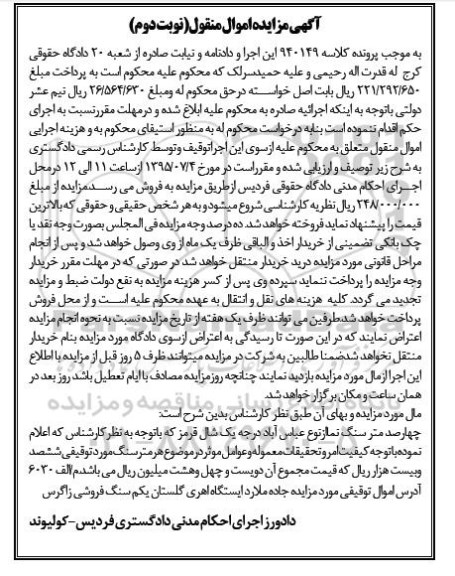 آگهی مزایده اموال منقول (نوبت دوم)
به موجب پرونده کلاسه ۹۴۰۱۴۹ این اجرا و دادنامه و نیابت صادره از شعبه ۲۰ دادگاه حقوقی
کرج له قدرت اله رحیمی و علیه حمیدسرلک که محکوم علیه محکوم است به پرداخت مبلغ
۲۲۱/۲۹۲/۶۵۰ ریال بابت اصل خواسته در حق محکوم له و مبلغ ۲۶/۵۶۴/۶۳۰ ریال نیم عشر
دولتی باتوجه به اینکه اجرائیه صادره به محکوم علیه ابلاغ شده و در مهلت مقرر نسبت به اجرای
حکم اقدام ننموده است بنا به درخواست محکوم له به منظور استیفای محکوم به و هزینه اجرایی
اموال منقول متعلق به محکوم علیه از سوی این اجرا توقیف و توسط کارشناس رسمی دادگستری
به شرح زیر توصیف و ارزیابی شده و مقرر است در مورخ ۱۳۹۵/۰۷/۴ از ساعت ۱۱ الی ۱۲ در محل
اجرای احکام مدنی دادگاه حقوقی فردیس از طریق مزایده به فروش می رسد. مزایده از مبلغ
۲۴۸/۰۰۰/۰۰۰ ریال نظریه کارشناسی شروع میشود و به هر شخص حقیقی و حقوقی که بالاترین
قیمت را پیشنهاد نماید فروخته خواهد شد. ده درصد وجه مزایده فی المجلس بصورت وجه نقد یا
چک بانکی تضمینی از خریدار اخذ و الباقی ظرف یک ماه از وی وصول خواهد شد و پس از انجام
مراحل قانونی مورد مزایده در ید خریدار منتقل خواهد شد در صورتی که در مهلت مقرر خریدار
وجه مزایده را پرداخت ننماید سپرده وی پس از کسر هزینه مزایده به نفع دولت ضبط و مزایده
تجدید می گردد. کلیه هزینه های نقل و انتقال به عهده محکوم علیه است و از محل فروش
پرداخت خواهد شد طرفین می توانند ظرف یک هفته از تاریخ مزایده نسبت به نحوه انجام مزایده
اعتراض نمایند که در این صورت تا رسیدگی به اعتراض از سوی دادگاه مورد مزایده بنام خریدار
منتقل نخواهد شد ضمنا طالبین به شرکت در مزایده میتوانند ظرف ۵ روز قبل از مزایده با اطلاع
این اجرا از مال مورد مزایده بازدید نمایند چنانچه روز مزایده مصادف با ایام تعطیل باشد روز بعد در
همان ساعت و مکان برگزار خواهد شد
مال مورد مزایده و بهای آن طبق نظر کارشناس بدین شرح است:
چهارصد متر سنگ نما از نوع عباس آباد درجه یک شال قرمز که باتوجه به نظر کارشناس که اعلام
نموده باتوجه کیفیت امر و تحقیقات معموله و عوامل موثر در موضوع هر متر سنگ مورد توقیفی ششصد
و بیست هزار ریال که قیمت مجموع آن دویست و چهل و هشت میلیون ریال می باشد. م الف ۶۰۳۰
آدرس اموال توقیفی مورد مزایده جاده ملارد ایستگاه اهری گلستان یکم سنگ فروشی زاگرس
دادورز اجرای احکام مدنی دادگستری فردیس - کولیوند